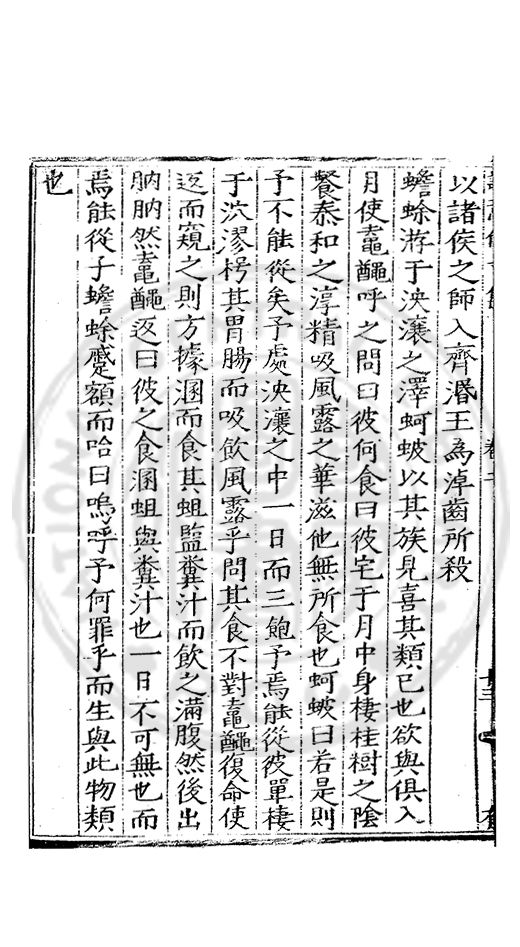 以諸侯之師入齊湣王為淖齒所殺
蟾蜍游于泱瀼之澤蚵蚾以其族見喜其類已也欲與俱入
月使鼀𪓰呼之問曰彼何食曰彼宅于月中身棲桂樹之陰
餐泰和之淳精吸風露之華滋他無所食也蚵蚾曰若是則
予不能從矣予處泱瀼之中一日而三飽予焉能從彼單棲
于泬漻枵其胃腸而吸飲風露乎問其食不對鼀𪓰復命使
返而窺之則方據溷而食其蛆盬糞汁而飲之滿腹然後出
肭肭然鼀𪓰返曰彼之食溷蛆與糞汁也一日不可無也而
焉能從子蟾蜍蹙額而咍曰嗚呼予何罪乎而生與此物類
也